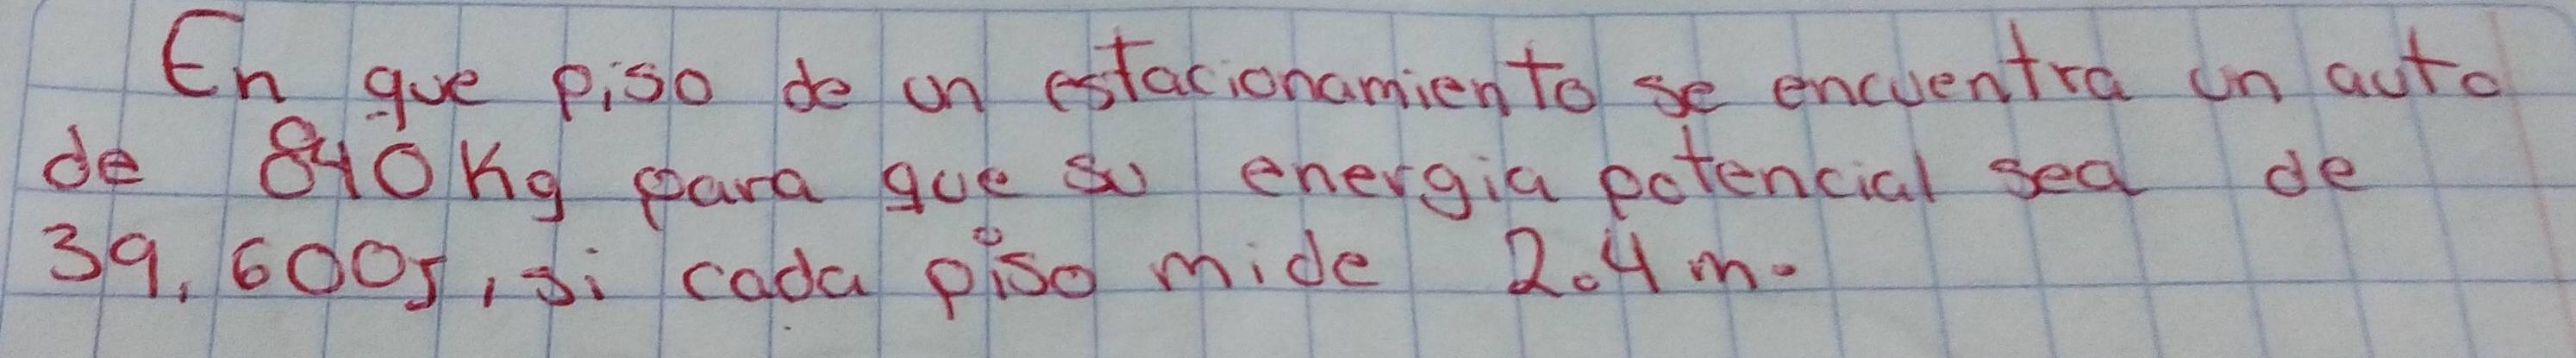 En que piso de un estacionamiento se encuentra un auto
de 840Kg para que su energia potencial sea de
39,600J, si cada piso mide 2.4 m.